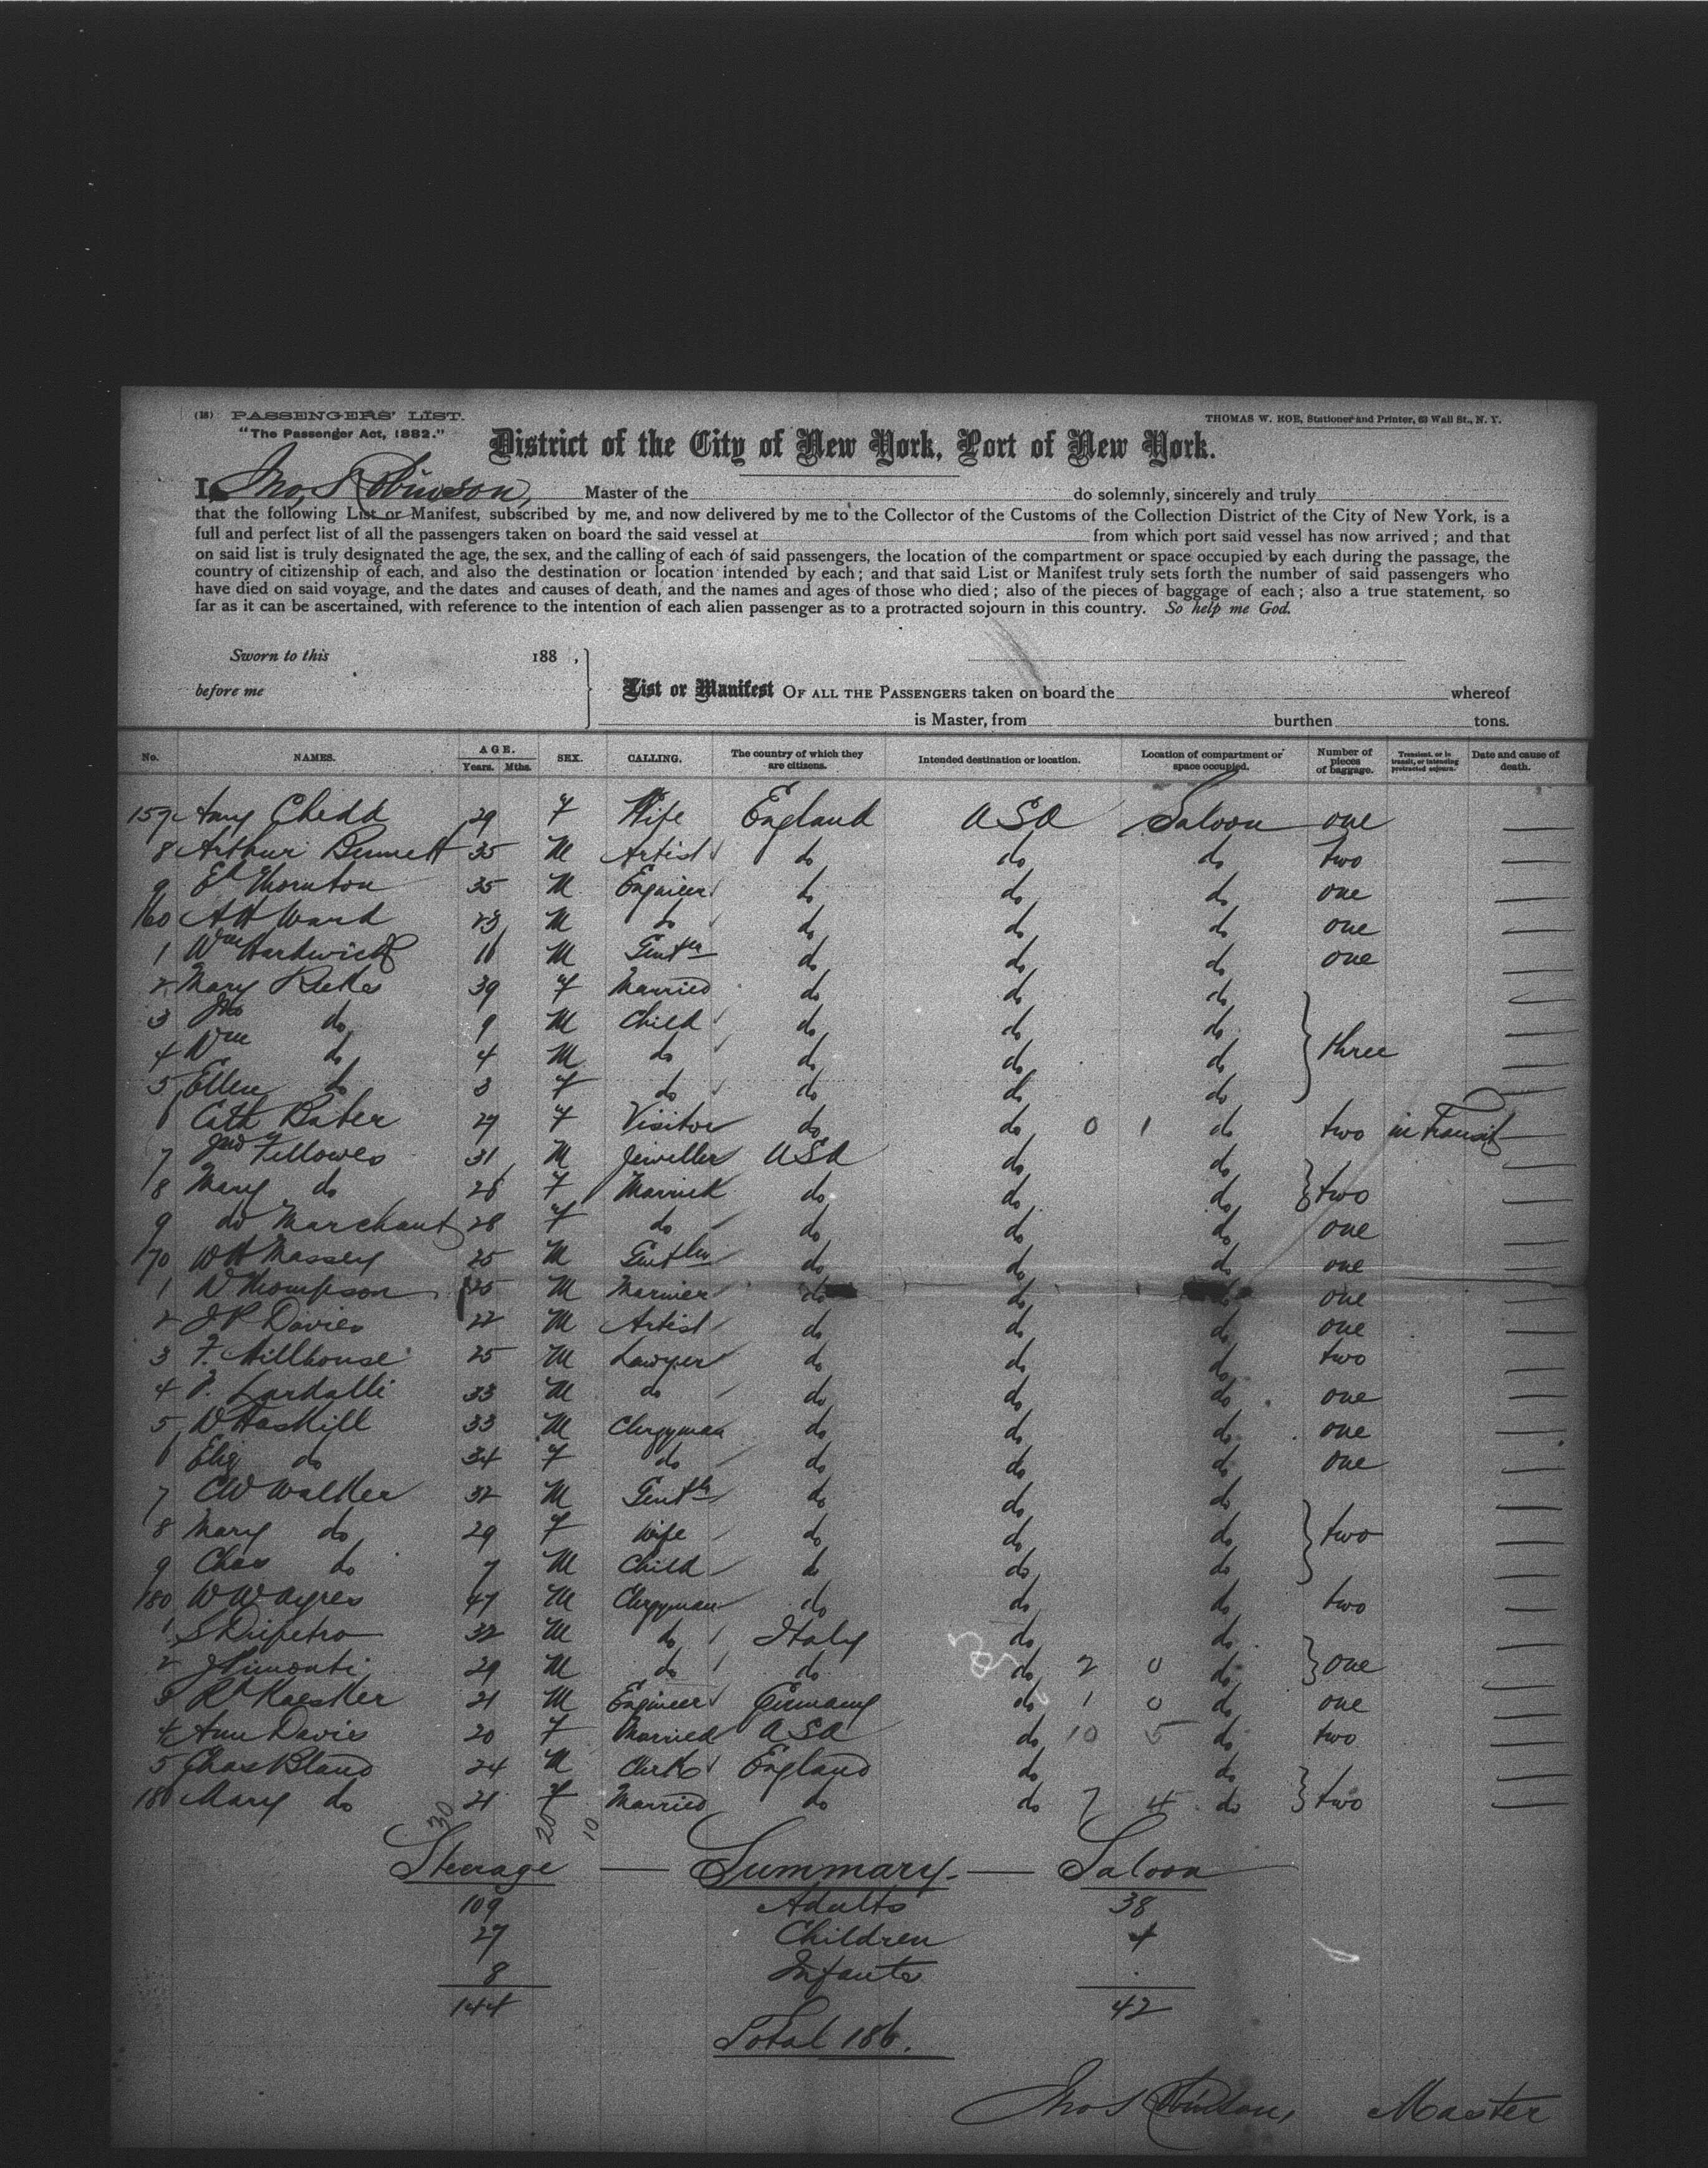 (18) PASSENGERS' LIST.
THOMAS W. ROE, Stationer and Printer, 63 Wall St., N. Y.
"The Passenger Act, 1882."
District of the City of New York, Port of New York.
I, Jno. S. Robinson, Master of the do solemnly, sincerely and truly
that the following List or Manifest, subscribed by me, and now delivered by me to the Collector of the Customs of the Collection District of the City of New York, is a
full and perfect list of all the passengers taken on board the said vessel at from which port said vessel has now arrived; and that
on said list is truly designated the age, the sex, and the calling of each of said passengers, the location of the compartment or space occupied by each during the passage, the
country of citizenship of each, and also the destination or location intended by each; and that said List or Manifest truly sets forth the number of said passengers who
have died on said voyage, and the dates and causes of death, and the names and ages of those who died; also of the pieces of baggage of each; also a true statement, so
far as it can be ascertained, with reference to the intention of each alien passenger as to a protracted sojourn in this country. So help me God.
Sworn to this 188 ,
before me
List or Manifest OF ALL THE PASSENGERS taken on board the whereof
is Master, from burthen tons.
No. NAMES. AGE. Years. Mths. SEX. CALLING. The country of which they are citizens. Intended destination or location. Location of compartment or space occupied. Number of pieces of baggage. Transient, or in transit, or intending protracted sojourn. Date and cause of death.
157 Amy Chedd 29 F Wife England USA Saloon one
8 Arthur Burnett 35 M Artist do do do two
9 Ed Thornton 35 M Engineer do do do one
160 A H Ward 23 M do do do do one
1 Wm Hardwick 16 M Gentn do do do one
2 Mary Rickes 39 F Married do do do
3 Jno do 9 M Child do do do
4 Wm do 4 M do do do do three
5 Ellen do 3 F do do do do
6 Cath Baber 29 F Visitor do do 0 1 do two in Transit
7 Jno Fellowes 31 M Jeweller USA do do
8 Mary do 26 F Married do do do two
9 do Marchant 28 F do do do do one
170 W H Massey 25 M Gentln do do do one
1 W Thompson 25 M Mariner do do do one
2 J P Davies 22 M Artist do do do one
3 F. Hillhouse 25 M Lawyer do do do two
4 Lardalli 33 M do do do do one
5 W Haskill 33 M Clergyman do do do one
6 Eliz do 34 F do do do do one
7 C W Walker 32 M Gentn do do do
8 Mary do 29 F Wife do do do two
9 Chas do 7 M Child do do do
180 W W Ayres 47 M Clergyman do do do two
1 S Dripetro 32 M do Italy do do
2 J Pimonti 29 M do do do 2 0 do one
3 Rd Kaestler 21 M Engineer Germany do 1 0 do one
4 Ann Davis 20 F Married USA do 10 5 do two
5 Chas Bland 24 M Clerk England do do
186 Mary do 21 F Married do do 7 4 do two
30 20 10
Steerage — Summary — Saloon
109 Adults 38
27 Children 4
8 Infants .
144 42
Total 186.
Jno S Robinson, Master